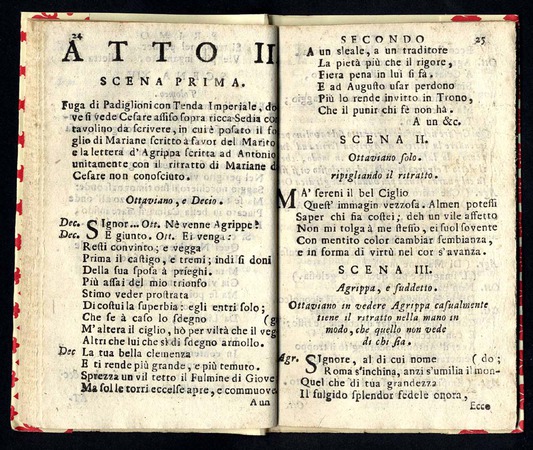 24
ATTO II
SCENA PRIMA.
Fuga di Padiglioni con Tenda Imperiale, do
ve si vede Cesare assiso sopra ricca Sedia con
tavolino da scrivere, in cui è posato il fo
glio di Mariane scritto à favor del Marito
e la lettera d'Agrippa scritta ad Antonio
unitamente con il ritratto di Mariane d
Cesare non conosciuto.
Ottaviano, e Decio.
Dec. SIgnor... Ott. Nè venne Agrippe?
Dec. E giunto. Ott. Ei venga:
Resti convinto; e vegga
Prima il castigo, e tremi; indi si doni
Della sua sposa à prieghi.
Più assai del mio trionfo
Stimo veder prostrata
Di costui la superbia: egli entri solo;
Che se à caso lo sdegno (g
M'altera il ciglio, hò per viltà che il veg
Altri che lui che sì di sdegno armollo.
Dec La tua bella clemenza
E ti rende più grande, e più temuto.
Sprezza un vil tetto il Fulmine di Giove
Ma sol le torri eccelse apre, e commuove
A un
SECONDO 25
A un sleale, a un traditore
La pietà più che il rigore,
Fiera pena in lui si fa.
E ad Augusto usar perdono
Più lo rende invitto in Trono,
Che il punir chi fè non hà.
A un &c.
SCENA II.
Ottaviano solo.
ripigliando il ritratto.
MA' sereni il bel Ciglio
Quest' immagin vezzosa. Almen potessi
Saper chi sia costei; deh un vile affetto
Non mi tolga à me stesso, ei suol sovente
Con mentito color cambiar sembianza,
e in forma di virtù nel cor s'avanza.
SCENA III.
Agrippa, e suddetto.
Ottaviano in vedere Agrippa casualmente
tiene il ritratto nella mano in
modo, che quello non vede
di chi sia.
Agr. SIgnore, al di cui nome (do;
Roma s'inchina, anzi s'umilia il mon-
Quel che di tua grandezza
Il fulgido splendor fedele onora,
Ecco